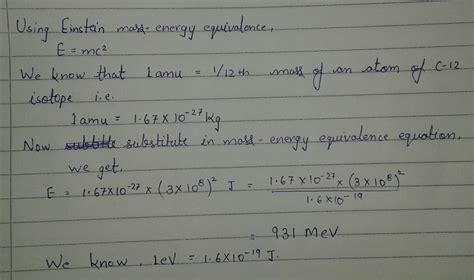 Using Einstein mass-energy equivalence,
E = mc²
We know that 1amu = 1/12th mass of an atom of C-12
isotope i.e.
1amu = 1.67 × 10⁻²⁷ kg
Now substitute in mass-energy equivalence equation,
we get,
E = 1.67×10⁻²⁷ × (3×10⁸)² J = 1.67 × 10⁻²⁷ × (3×10⁸)² / 1.6 × 10⁻¹⁹
= 931 MeV
We know, 1eV = 1.6×10⁻¹⁹ J.